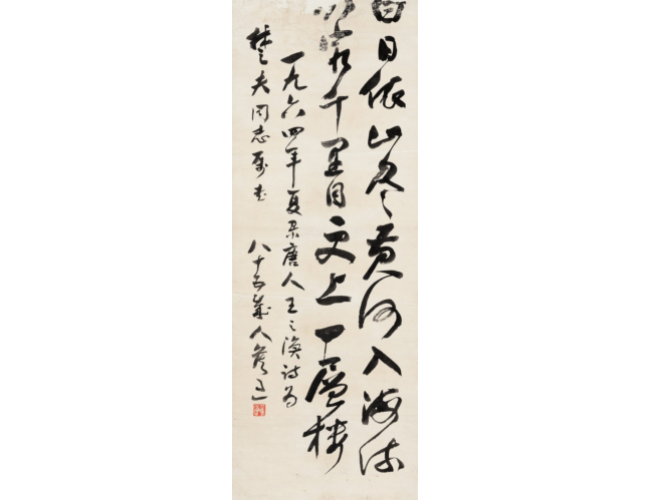 白日依山尽黄河入海流
欲窮千里目更上一層楼
一九六四年夏录唐人王之涣诗为
楚夫同志属书 八十五歲人